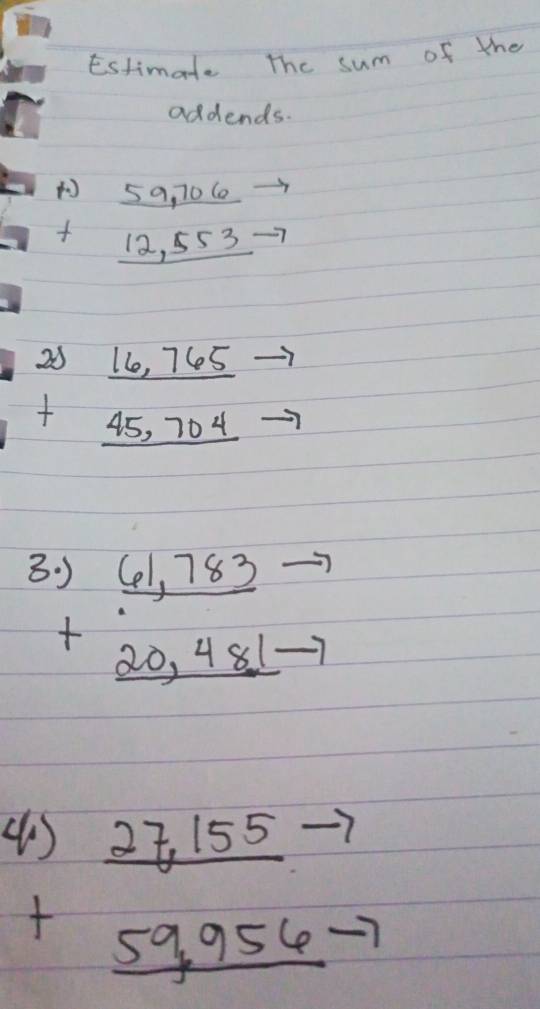 Estimate The sum of the
addends.
1.) 59,706 →
+ 12,553 →
2.) 16,765 →
+ 45,704 →
3.) 61,783 →
+ 20,481 →
4.) 27,155 →
+ 59,956 →